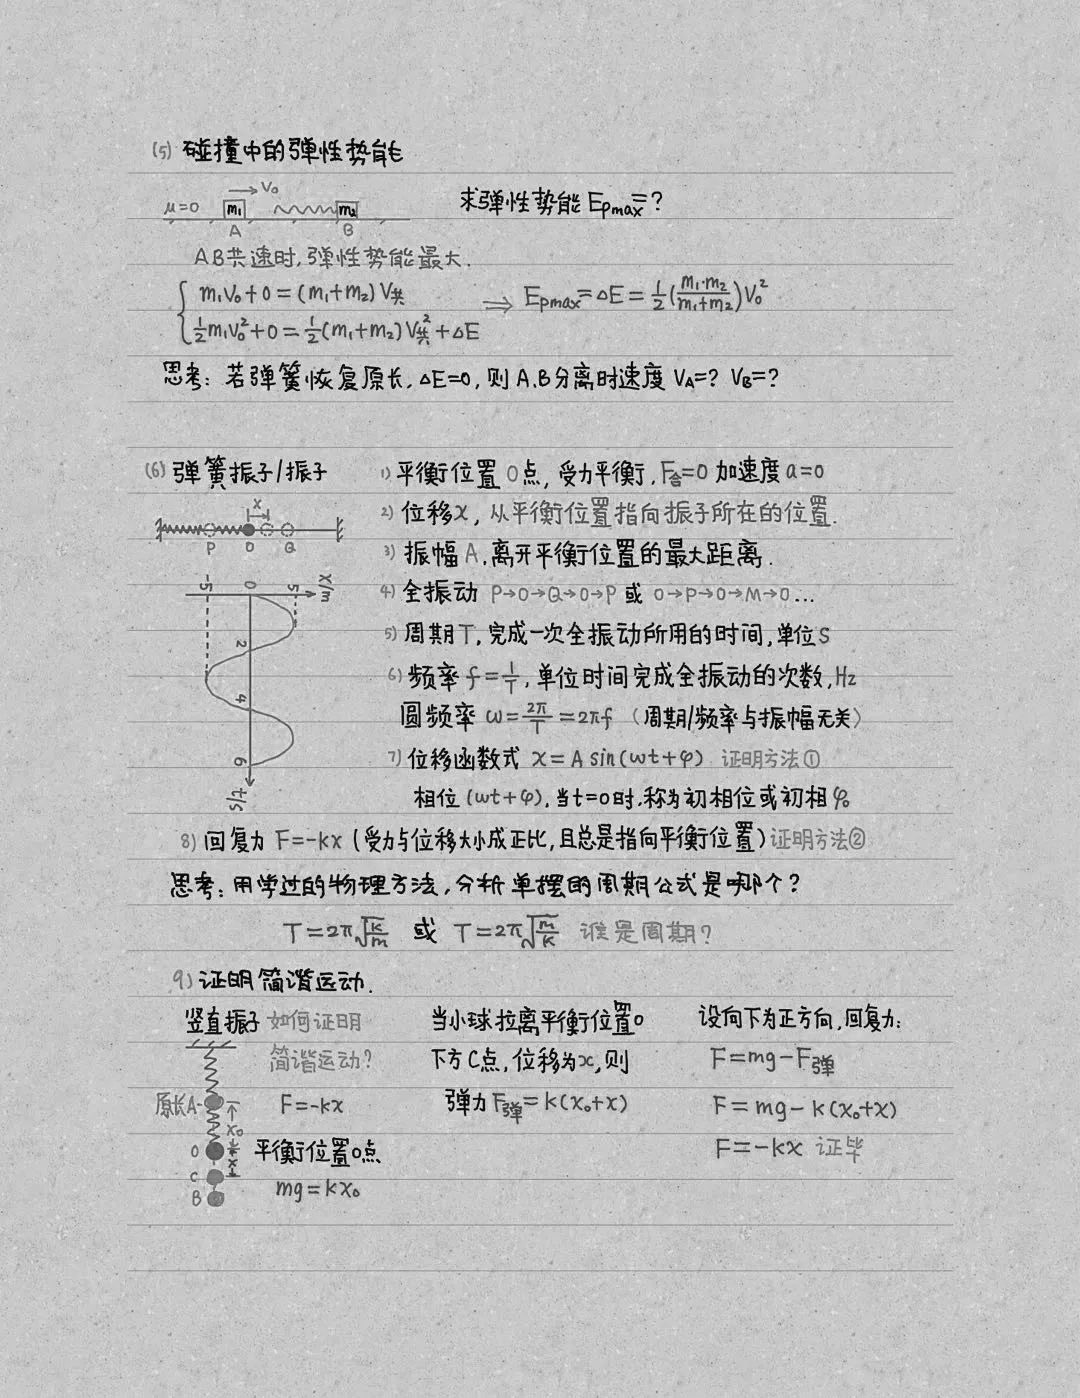 (5) 碰撞中的弹性势能
μ=0 m₁ V₀ m₂ 求弹性势能 Epmax=?
A B
AB共速时,弹性势能最大.
m₁V₀+0=(m₁+m₂)V共 ⇒ Epmax=ΔE=½(m₁·m₂/m₁+m₂)V₀²
½m₁V₀²+0=½(m₁+m₂)V共²+ΔE
思考:若弹簧恢复原长,ΔE=0,则A.B分离时速度 VA=? VB=?
(6) 弹簧振子/振子
x
P O Q
-5 0 5 X/m
2
4
6
t/s
1) 平衡位置O点,受力平衡,F合=0 加速度a=0
2) 位移x,从平衡位置指向振子所在的位置.
3) 振幅A,离开平衡位置的最大距离.
4) 全振动 P→O→Q→O→P 或 O→P→O→M→O...
5) 周期T,完成一次全振动所用的时间,单位S
6) 频率f=1/T,单位时间完成全振动的次数,Hz
圆频率 ω=2π/T=2πf (周期/频率与振幅无关)
7) 位移函数式 x=A sin(ωt+φ) 证明方法①
相位(ωt+φ),当t=0时,称为初相位或初相φ₀
8) 回复力 F=-kx (受力与位移大小成正比,且总是指向平衡位置) 证明方法②
思考:用学过的物理方法,分析单摆的周期公式是哪个?
T=2π√(k/m) 或 T=2π√(m/k) 谁是周期?
9) 证明简谐运动.
竖直振子 如何证明
简谐运动?
原长A F=-kx
x₀
O 平衡位置O点
x
C mg=kx₀
B
当小球拉离平衡位置O
下方C点,位移为x,则
弹力F弹=k(x₀+x)
设向下为正方向,回复力:
F=mg-F弹
F=mg-k(x₀+x)
F=-kx 证毕